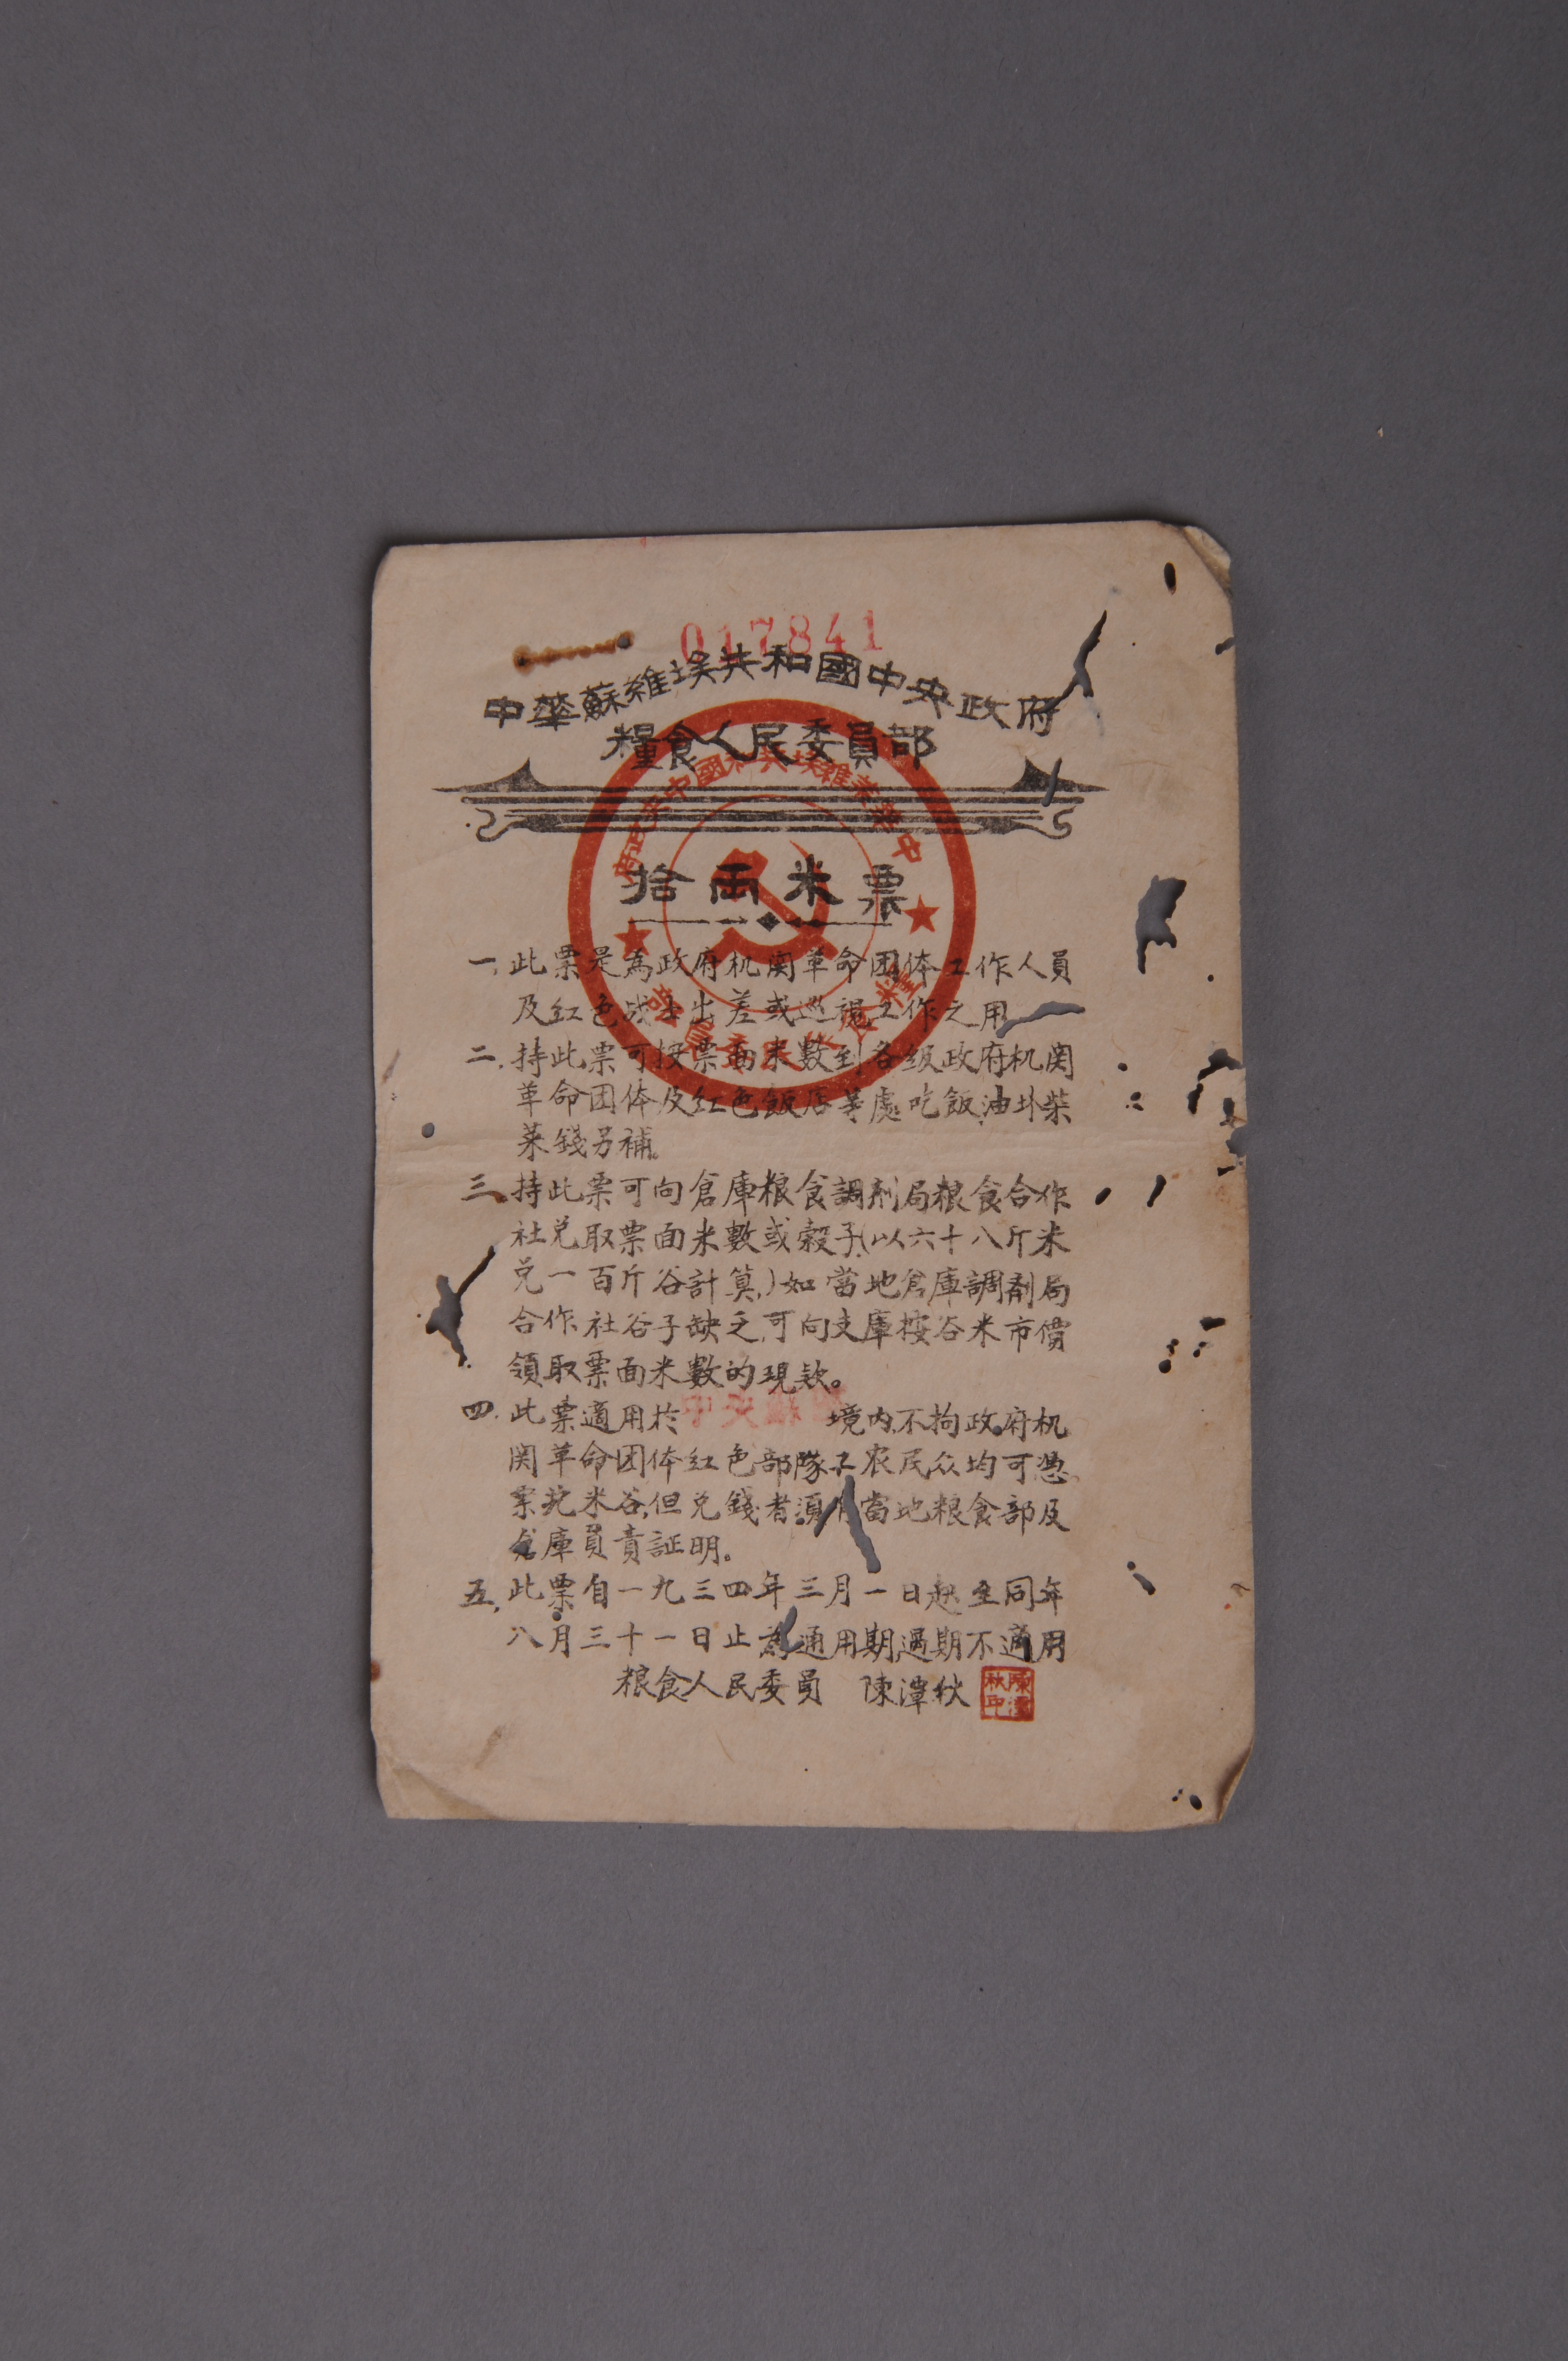 017841
中華蘇維埃共和國中央政府
糧食人民委員部
拾兩米票
一.此票是為政府机関革命团体工作人員
及红色战士出差或巡視工作之用
二.持此票可按票面米數到各級政府机関
革命团体及红色飯店等處吃飯,油盐柴
菜錢另補。
三.持此票可向倉庫粮食調剂局粮食合作
社兑取票面米數或穀子(以六十八斤米
兑一百斤谷計算,)如當地倉庫調剂局
合作社谷子缺乏,可向支庫按谷米市價
領取票面米數的現款。
四.此票適用於中央蘇區境内,不拘政府机
関革命团体红色部隊工农民众均可憑
票兑米谷,但兑錢者須有當地粮食部及
倉庫負責証明。
五.此票自一九三四年三月一日起至同年
八月三十一日止為通用期,過期不適用
粮食人民委員 陳潭秋
陳潭秋印
中華蘇維埃共和國中央政府
糧食人民委員部